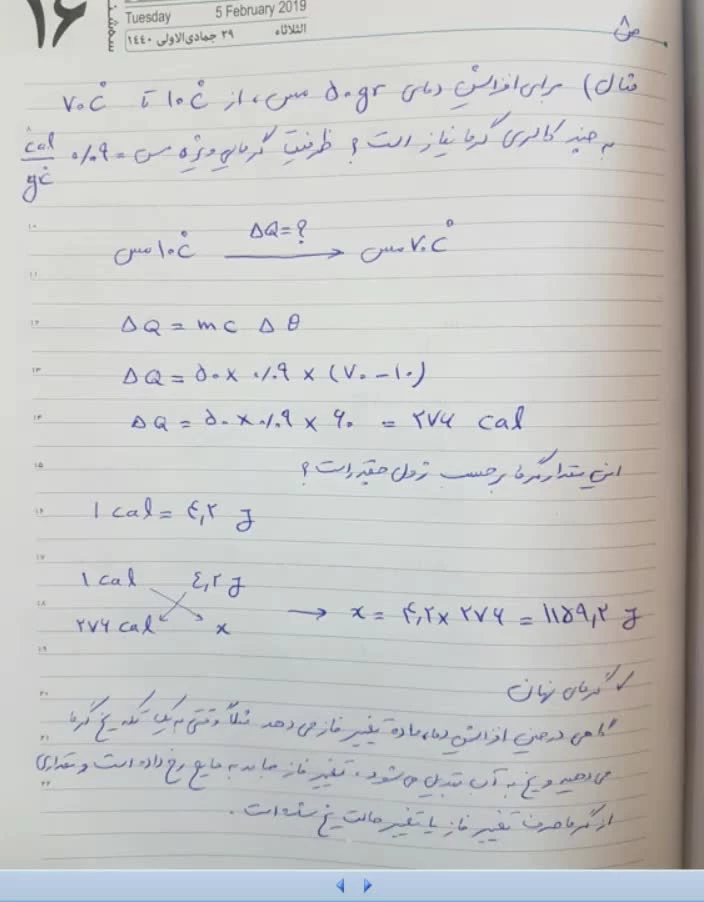 ۱۶
سه‌شنبه
Tuesday 5 February 2019
الثلاثاء ۲۹ جمادی‌الاولی ۱٤٤۰
ص ۸
مثال) برای افزایش دمای ۵۰gr مس، از ۱۰°C تا ۷۰°C
به چند کالری گرما نیاز است؟ ظرفیت گرمایی ویژه مس = ۰/۰۹ cal/g°C
مس ۱۰°C ΔQ=? ⟶ مس ۷۰°C
ΔQ = mc Δθ
ΔQ = ۵۰ × ۰/۰۹ × (۷۰ − ۱۰)
ΔQ = ۵۰ × ۰/۰۹ × ۶۰ = ۲۷۶ cal
این مقدار گرما برحسب ژول چقدر است؟
۱ cal = ٤,۲ J
۱ cal ٤,۲ J
۲۷۶ cal x → x = ۴,۲ × ۲۷۶ = ۱۱۵۹,۲ J
✓ گرمای نهان
گاهی در حین افزایش دما، ماده تغییر فاز می دهد مثلاً وقتی به یک تکه یخ گرما
می دهیم و یخ به آب تبدیل می شود، تغییر فاز جامد به مایع رخ داده است و مقداری
از گرما صرف تغییر فاز یا تغییر حالت یخ شده است.